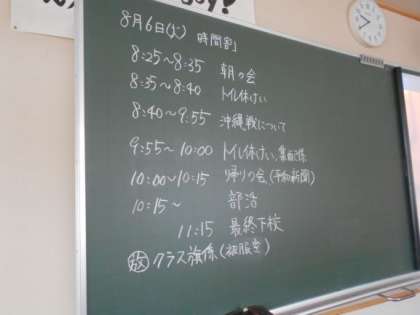 8月6日(火) 時間割
8:25~8:35 朝の会
8:35~8:40 トイレ休けい
8:40~9:55 沖縄戦について
9:55~10:00 トイレ休けい、
10:00~10:15 帰りの会(平和新聞)
10:15~ 部活
11:15 最終下校
放 クラス旗係(被服室)